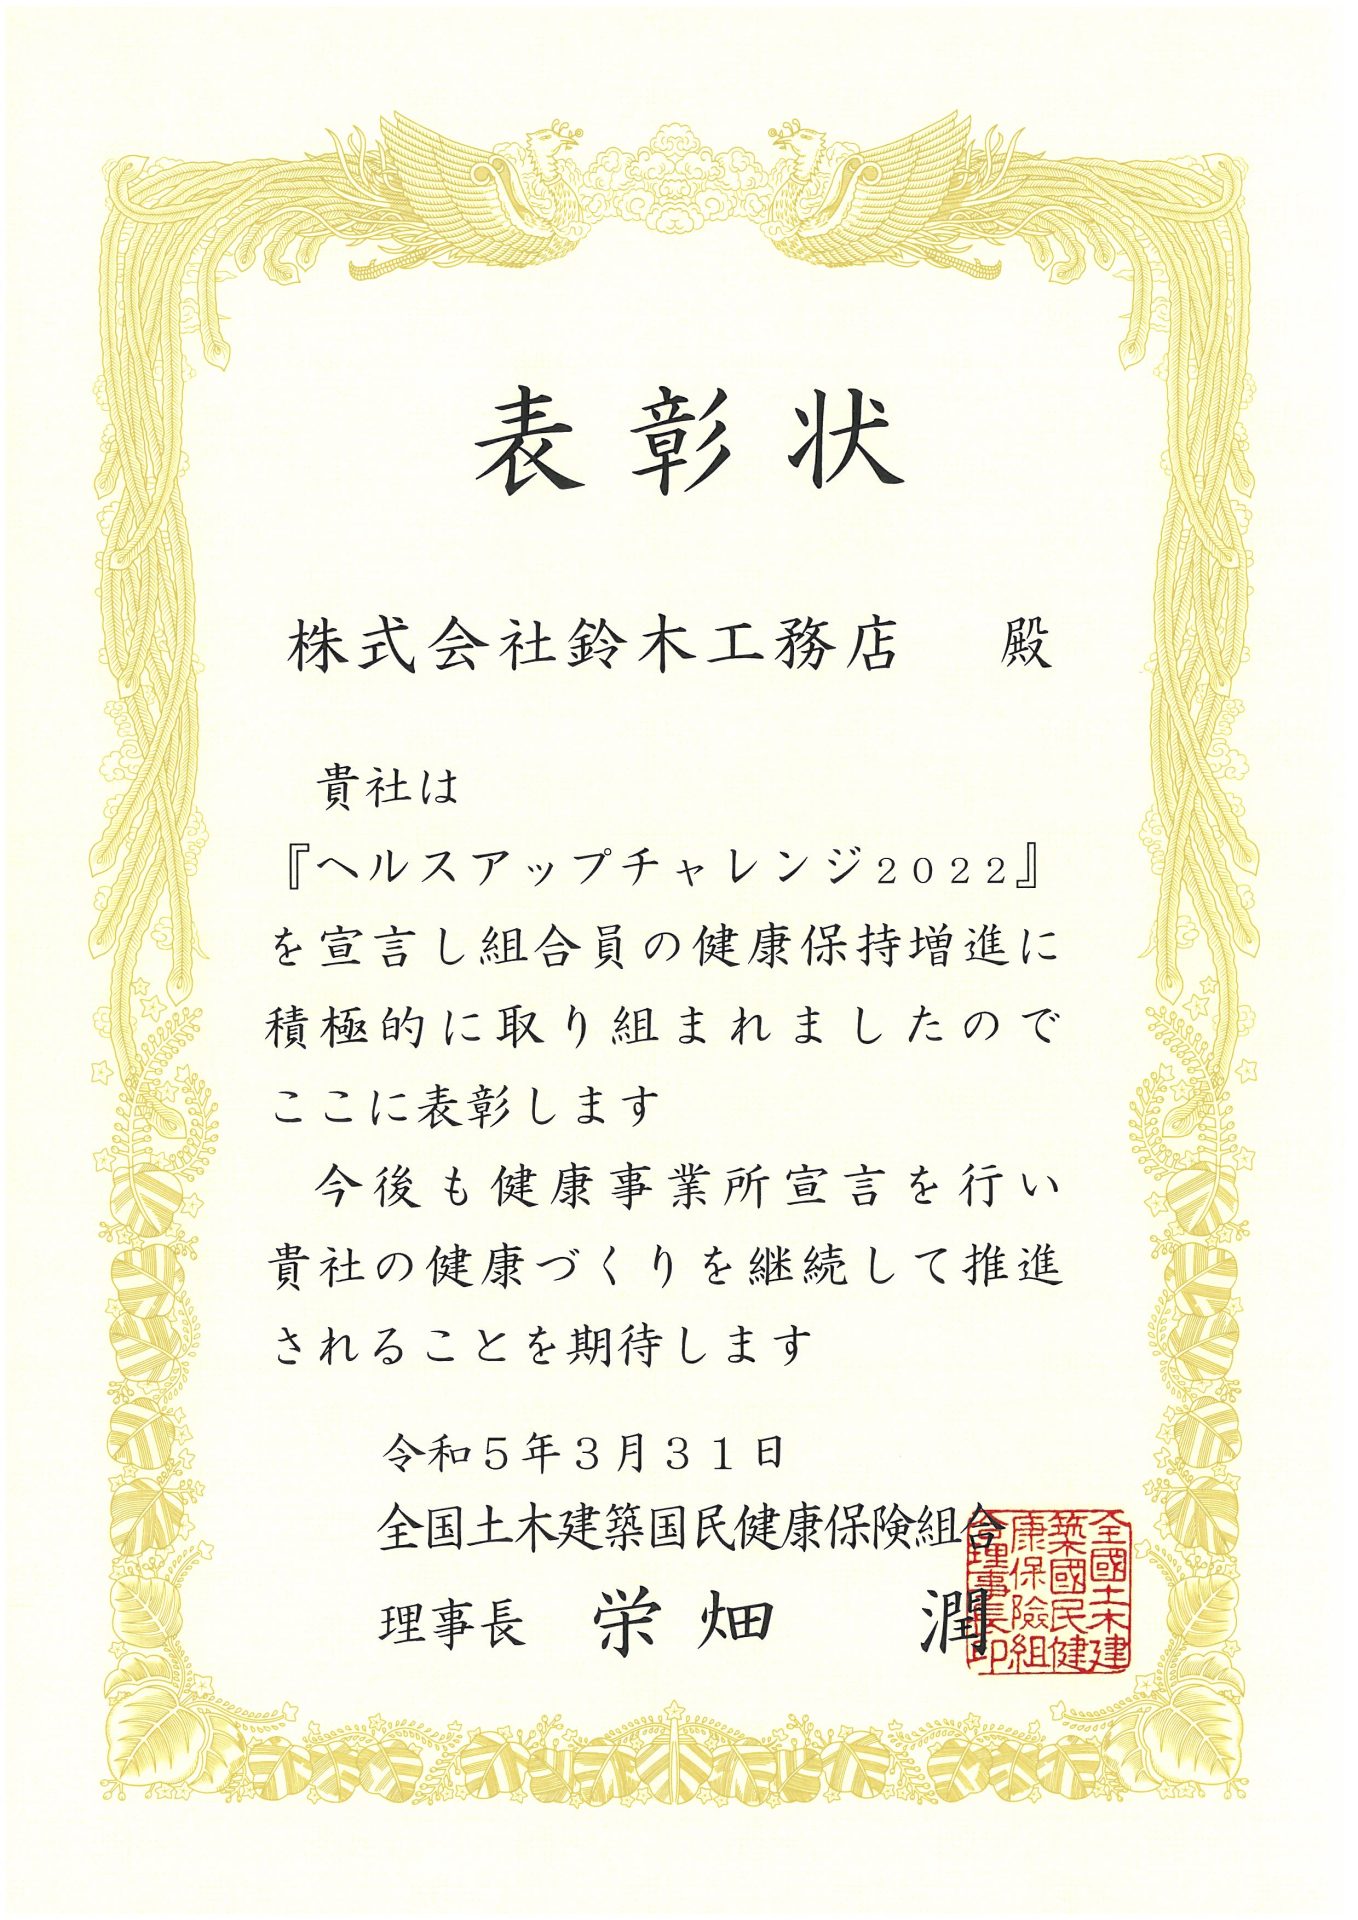 表彰状
株式会社鈴木工務店　殿
貴社は
『ヘルスアップチャレンジ２０２２』
を宣言し組合員の健康保持増進に
積極的に取り組まれましたので
ここに表彰します
今後も健康事業所宣言を行い
貴社の健康づくりを継続して推進
されることを期待します
令和５年３月３１日
全国土木建築国民健康保険組合
理事長　栄畑　潤
全國土木建
築國民健
康保險組
合理事長印